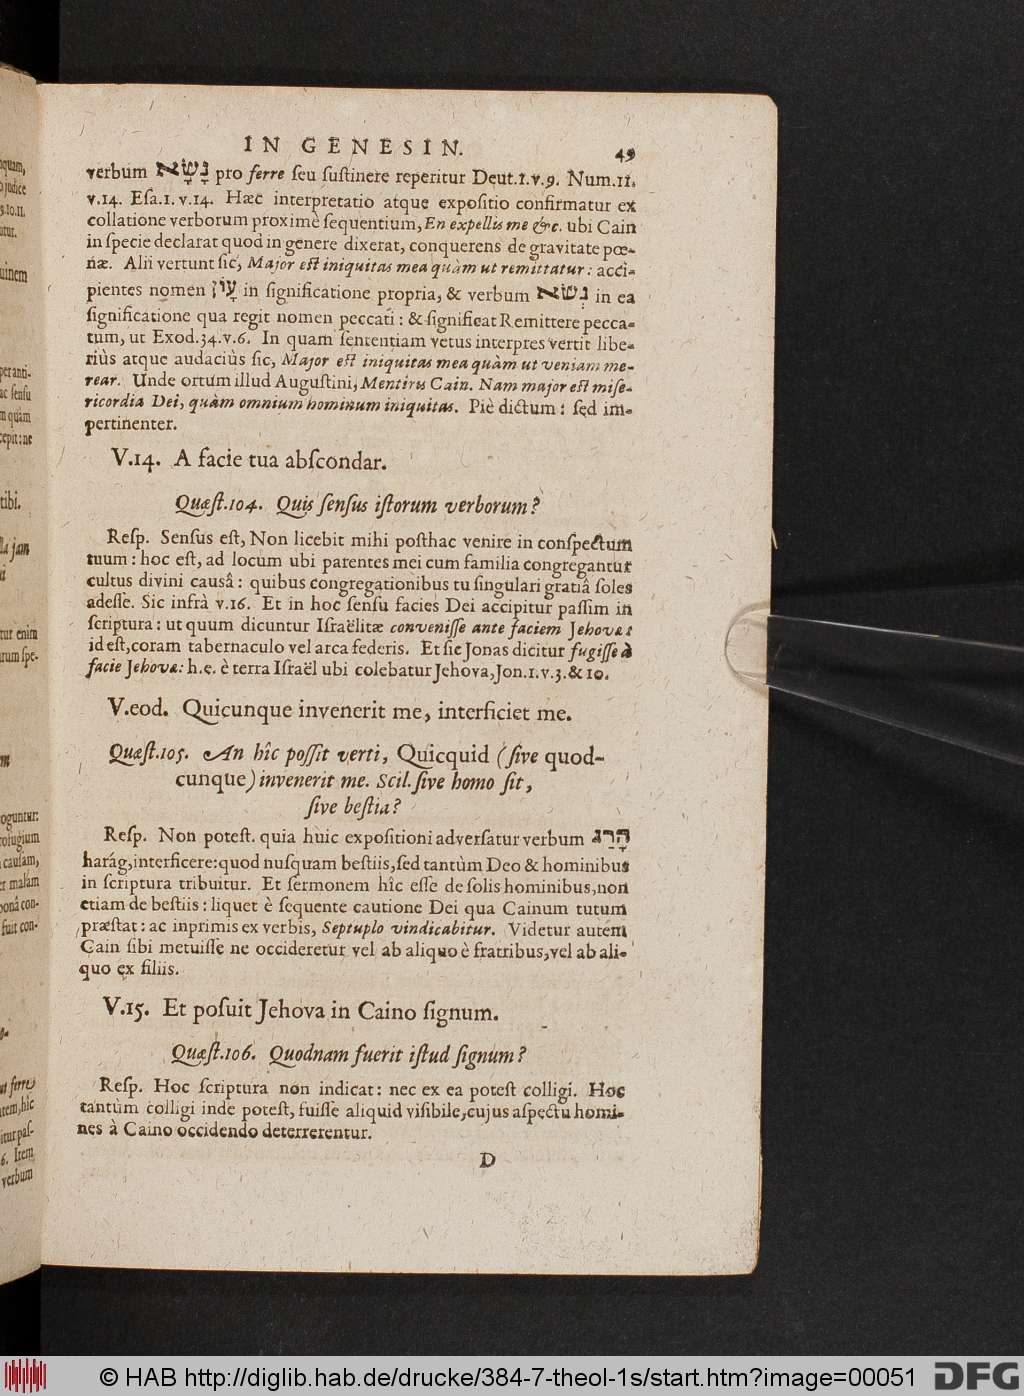 IN GENESIN. 49
verbum נָשָׂא pro ferre ſeu ſuſtinere reperitur Deut.1.v.9. Num.11.
v.14. Eſa.1.v.14. Hæc interpretatio atque expoſitio confirmatur ex
collatione verborum proximè ſequentium, En expellis me &c. ubi Cain
in ſpecie declarat quod in genere dixerat, conquerens de gravitate pœ-
næ. Alii vertunt ſic, Major eſt iniquitas mea quàm ut remittatur: acci-
pientes nomen עָוֹן in ſignificatione propria, & verbum נְשׂוֹא in ea
ſignificatione qua regit nomen peccati: & ſignificat Remittere pecca-
tum, ut Exod.34.v.6. In quam ſententiam vetus interpres vertit libe-
riùs atque audaciùs ſic, Major eſt iniquitas mea quàm ut veniam me-
rear. Unde ortum illud Auguſtini, Mentiris Cain. Nam major eſt miſe-
ricordia Dei, quàm omnium hominum iniquitas. Piè dictum: ſed im-
pertinenter.
V.14. A facie tua abſcondar.
Quæſt.104. Quis ſenſus iſtorum verborum?
Reſp. Senſus eſt, Non licebit mihi poſthac venire in conſpectum
tuum: hoc eſt, ad locum ubi parentes mei cum familia congregantur
cultus divini causâ: quibus congregationibus tu ſingulari gratiâ ſoles
adeſſe. Sic infrà v.16. Et in hoc ſenſu facies Dei accipitur paſſim in
ſcriptura: ut quum dicuntur Iſraëlitæ conveniſſe ante faciem Jehovæ:
id eſt, coram tabernaculo vel arca fœderis. Et ſic Jonas dicitur fugiſſe à
facie Jehovæ: h.e. è terra Iſraël ubi colebatur Jehova, Jon.1.v.3.& 10.
V.eod. Quicunque invenerit me, interficiet me.
Quæſt.105. An hîc poſſit verti, Quicquid (ſive quod-
cunque) invenerit me. Scil. ſive homo ſit,
ſive beſtia?
Reſp. Non poteſt. quia huic expoſitioni adverſatur verbum הָרַג
harág, interficere: quod nuſquam beſtiis, ſed tantùm Deo & hominibus
in ſcriptura tribuitur. Et ſermonem hîc eſſe de ſolis hominibus, non
etiam de beſtiis: liquet è ſequente cautione Dei qua Cainum tutum
præſtat: ac inprimis ex verbis, Septuplo vindicabitur. Videtur autem
Cain ſibi metuiſſe ne occideretur vel ab aliquo è fratribus, vel ab ali-
quo ex filiis.
V.15. Et poſuit Jehova in Caino ſignum.
Quæſt.106. Quodnam fuerit iſtud ſignum?
Reſp. Hoc ſcriptura non indicat: nec ex ea poteſt colligi. Hoc
tantùm colligi inde poteſt, fuiſſe aliquid viſibile, cujus aſpectu homi-
nes à Caino occidendo deterrerentur.
D
© HAB http://diglib.hab.de/drucke/384-7-theol-1s/start.htm?image=00051
DFG